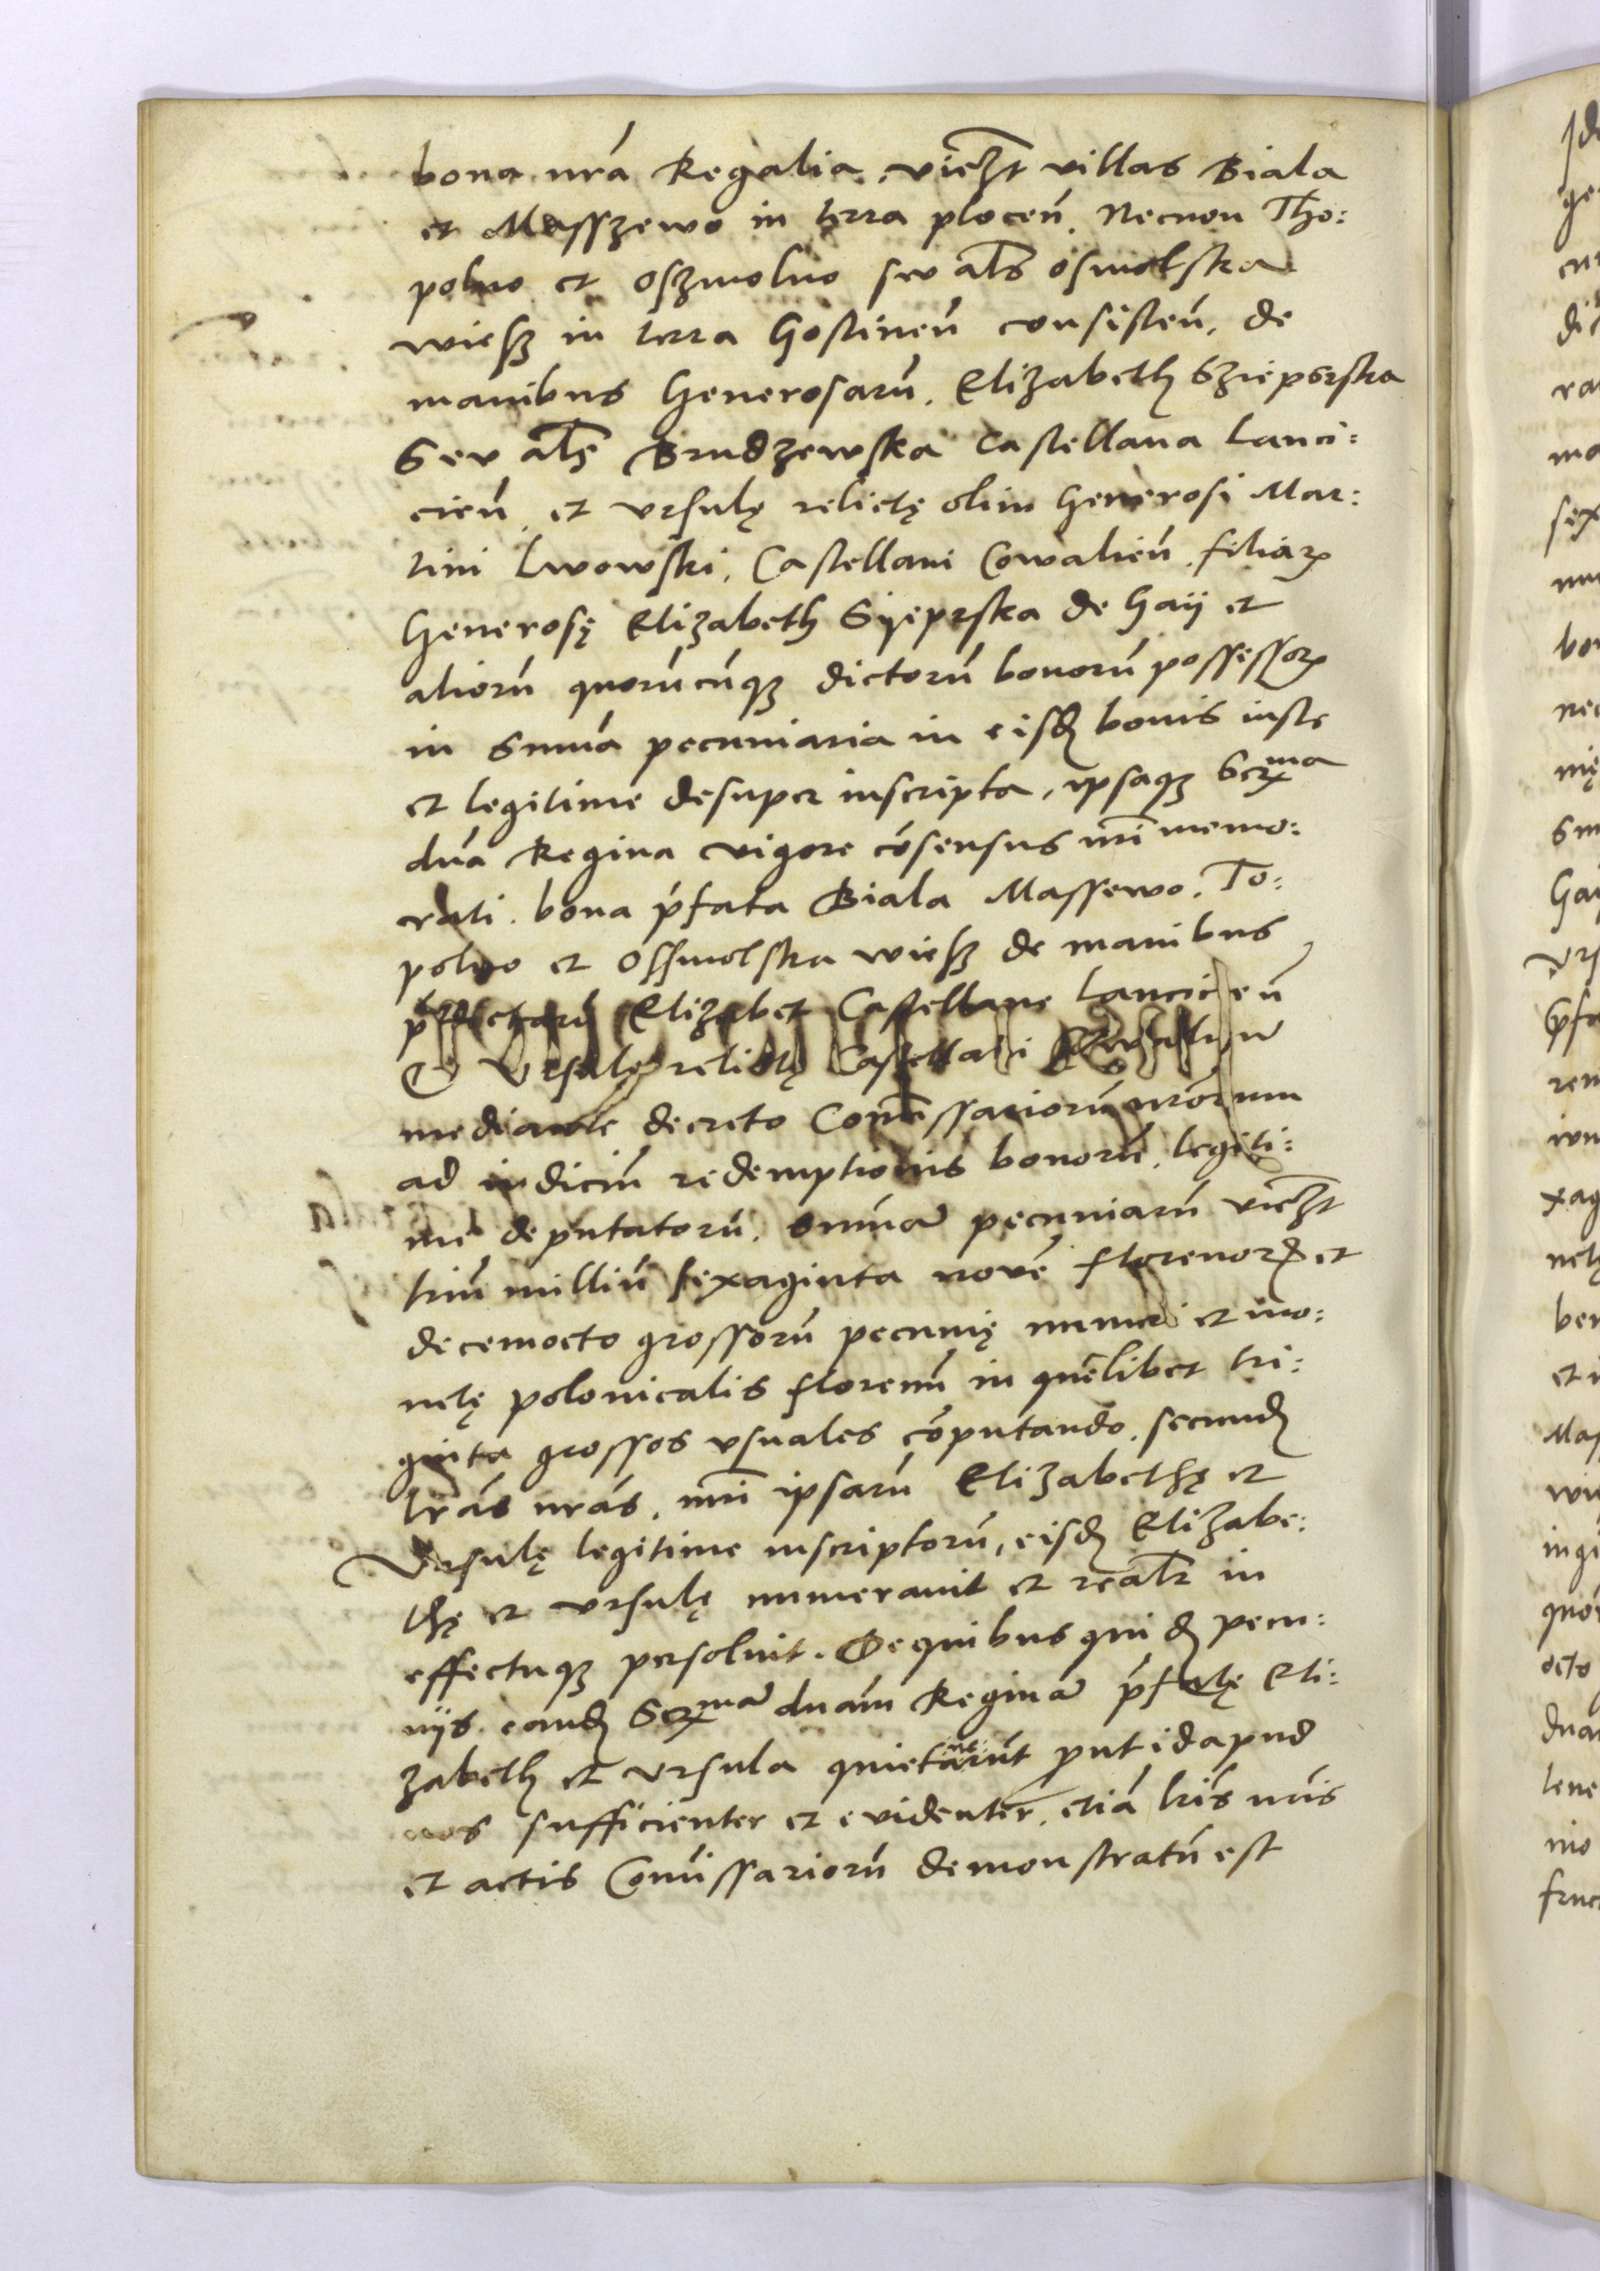 bona nrā Regalia, vičzt villas Biala
et Masszewo in terra plocen̄. Necnon Tho:
polno et oszmolno sev al̄s osmolska
wiesz in terra Gostinen̄ consisten̄, de
manibus Generosarū, Elizabeth Szieprska
Sev al̄s Brudzewska Castellana Lanci:
cien̄, et Vrsulę relictę olim Generosi Mar:
tini Lwowski, Castellani Cowalien̄, filiaꝝ
Generosę Elizabeth Syeprska de Gaÿ et
aliorū quorūcūqꝫ dictorū bonorū possessoꝝ
in Summā pecuniaria in eisd bonis iuste
et legitime desuper inscripta, ipsaqꝫ Serma
dnā Regina vigore cōsensus nr̄i memo:
rati, bona p̄fata Biala Massewo, To:
polno et Ossmolska wiesz de manibus
p̄dictarū Elizabet Castellane Lancicien̄
Et Vrsulę relictę Castellani
mediante decreto Com̄issariorū nrōrum
ad iudiciū redemptionis bonorū, legiti:
me deputatorū, summā pecuniarū vičzt
triū milliū sexaginta novē florenorꝝ et
decemocto grossorū pecunię numeri et mo:
netę polonicalis florenū in quēlibet tri:
ginta grossos vsuales cōputando, secund
lrās nrās, nr̄i ipsarū Elizabethę et
Vrsulę legitime inscriptorū, eisd Elizabe:
thę et Vrsulę numerauit et realr̄ in
effectuqꝫ persoluit. De quibus quid pecu:
nijs eand Sermā dnām Reginā p̄fatę Eli:
zabeth et Vrsula quietarūt prout id apud
nos sufficienter et evidenter, etiā lris nris
et actis Com̄issariorū demonstratū est